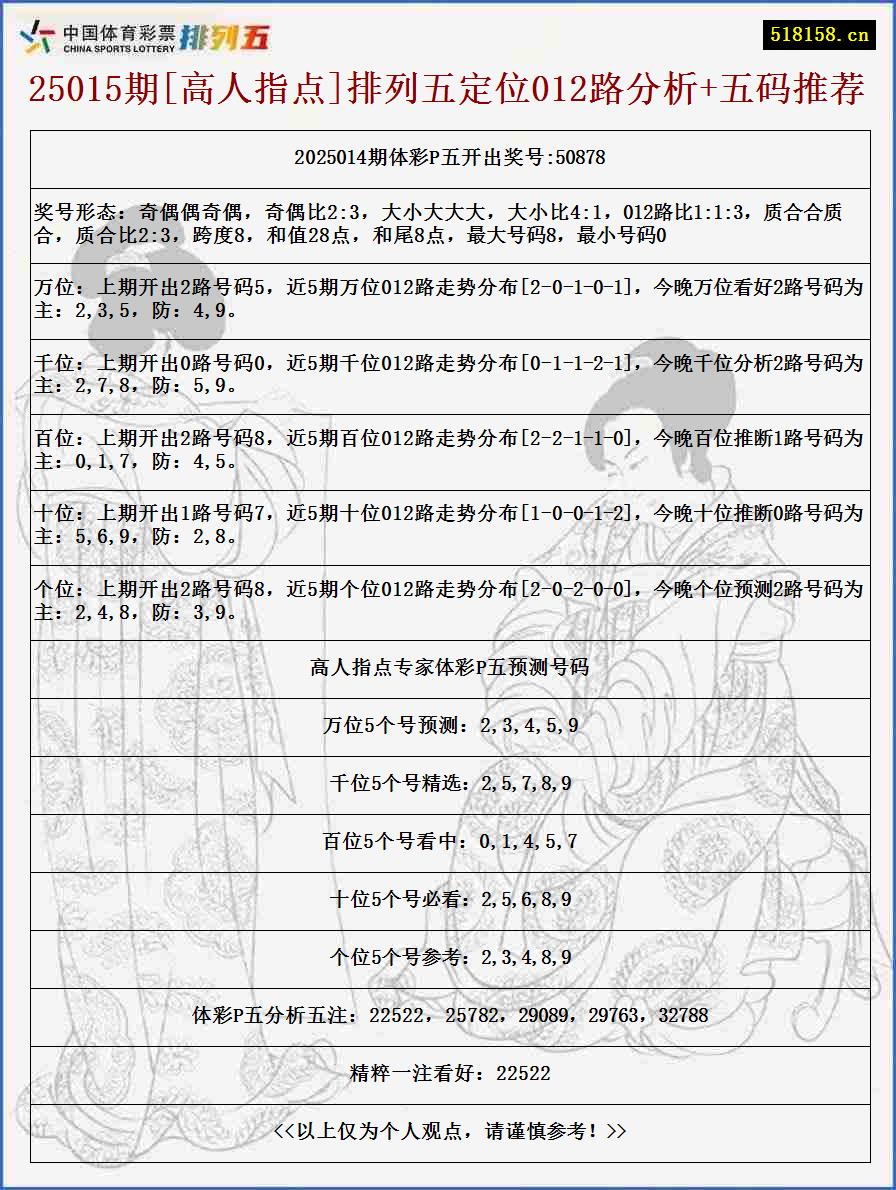 中国体育彩票
CHINA SPORTS LOTTERY
排列五
518158.cn
25015期[高人指点]排列五定位012路分析+五码推荐
2025014期体彩P五开出奖号:50878
奖号形态: 奇偶偶奇偶, 奇偶比2:3, 大小大大大, 大小比4:1, 012路比1:1:3, 质合合质
合, 质合比2:3, 跨度8, 和值28点, 和尾8点, 最大号码8, 最小号码0
万位: 上期开出2路号码5, 近5期万位012路走势分布[2-0-1-0-1], 今晚万位看好2路号码为
主: 2,3,5, 防: 4,9。
千位: 上期开出0路号码0, 近5期千位012路走势分布[0-1-1-2-1], 今晚千位分析2路号码为
主: 2,7,8, 防: 5,9。
百位: 上期开出2路号码8, 近5期百位012路走势分布[2-2-1-1-0], 今晚百位推断1路号码为
主: 0,1,7, 防: 4,5。
十位: 上期开出1路号码7, 近5期十位012路走势分布[1-0-0-1-2], 今晚十位推断0路号码为
主: 5,6,9, 防: 2,8。
个位: 上期开出2路号码8, 近5期个位012路走势分布[2-0-2-0-0], 今晚个位预测2路号码为
主: 2,4,8, 防: 3,9。
高人指点专家体彩P五预测号码
万位5个号预测: 2,3,4,5,9
千位5个号精选: 2,5,7,8,9
百位5个号看中: 0,1,4,5,7
十位5个号必看: 2,5,6,8,9
个位5个号参考: 2,3,4,8,9
体彩P五分析五注: 22522, 25782, 29089, 29763, 32788
精粹一注看好: 22522
<<以上仅为个人观点, 请谨慎参考! >>